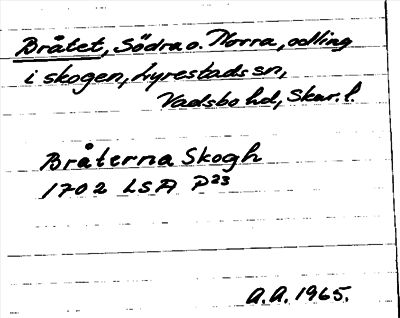 Bråtet, Södra o. Norra, odling
i skogen, Lyrestads sn,
Vadsbo hd, Skar. l.
Bråterna Skogh
1702 LSA P23
A.A. 1965.